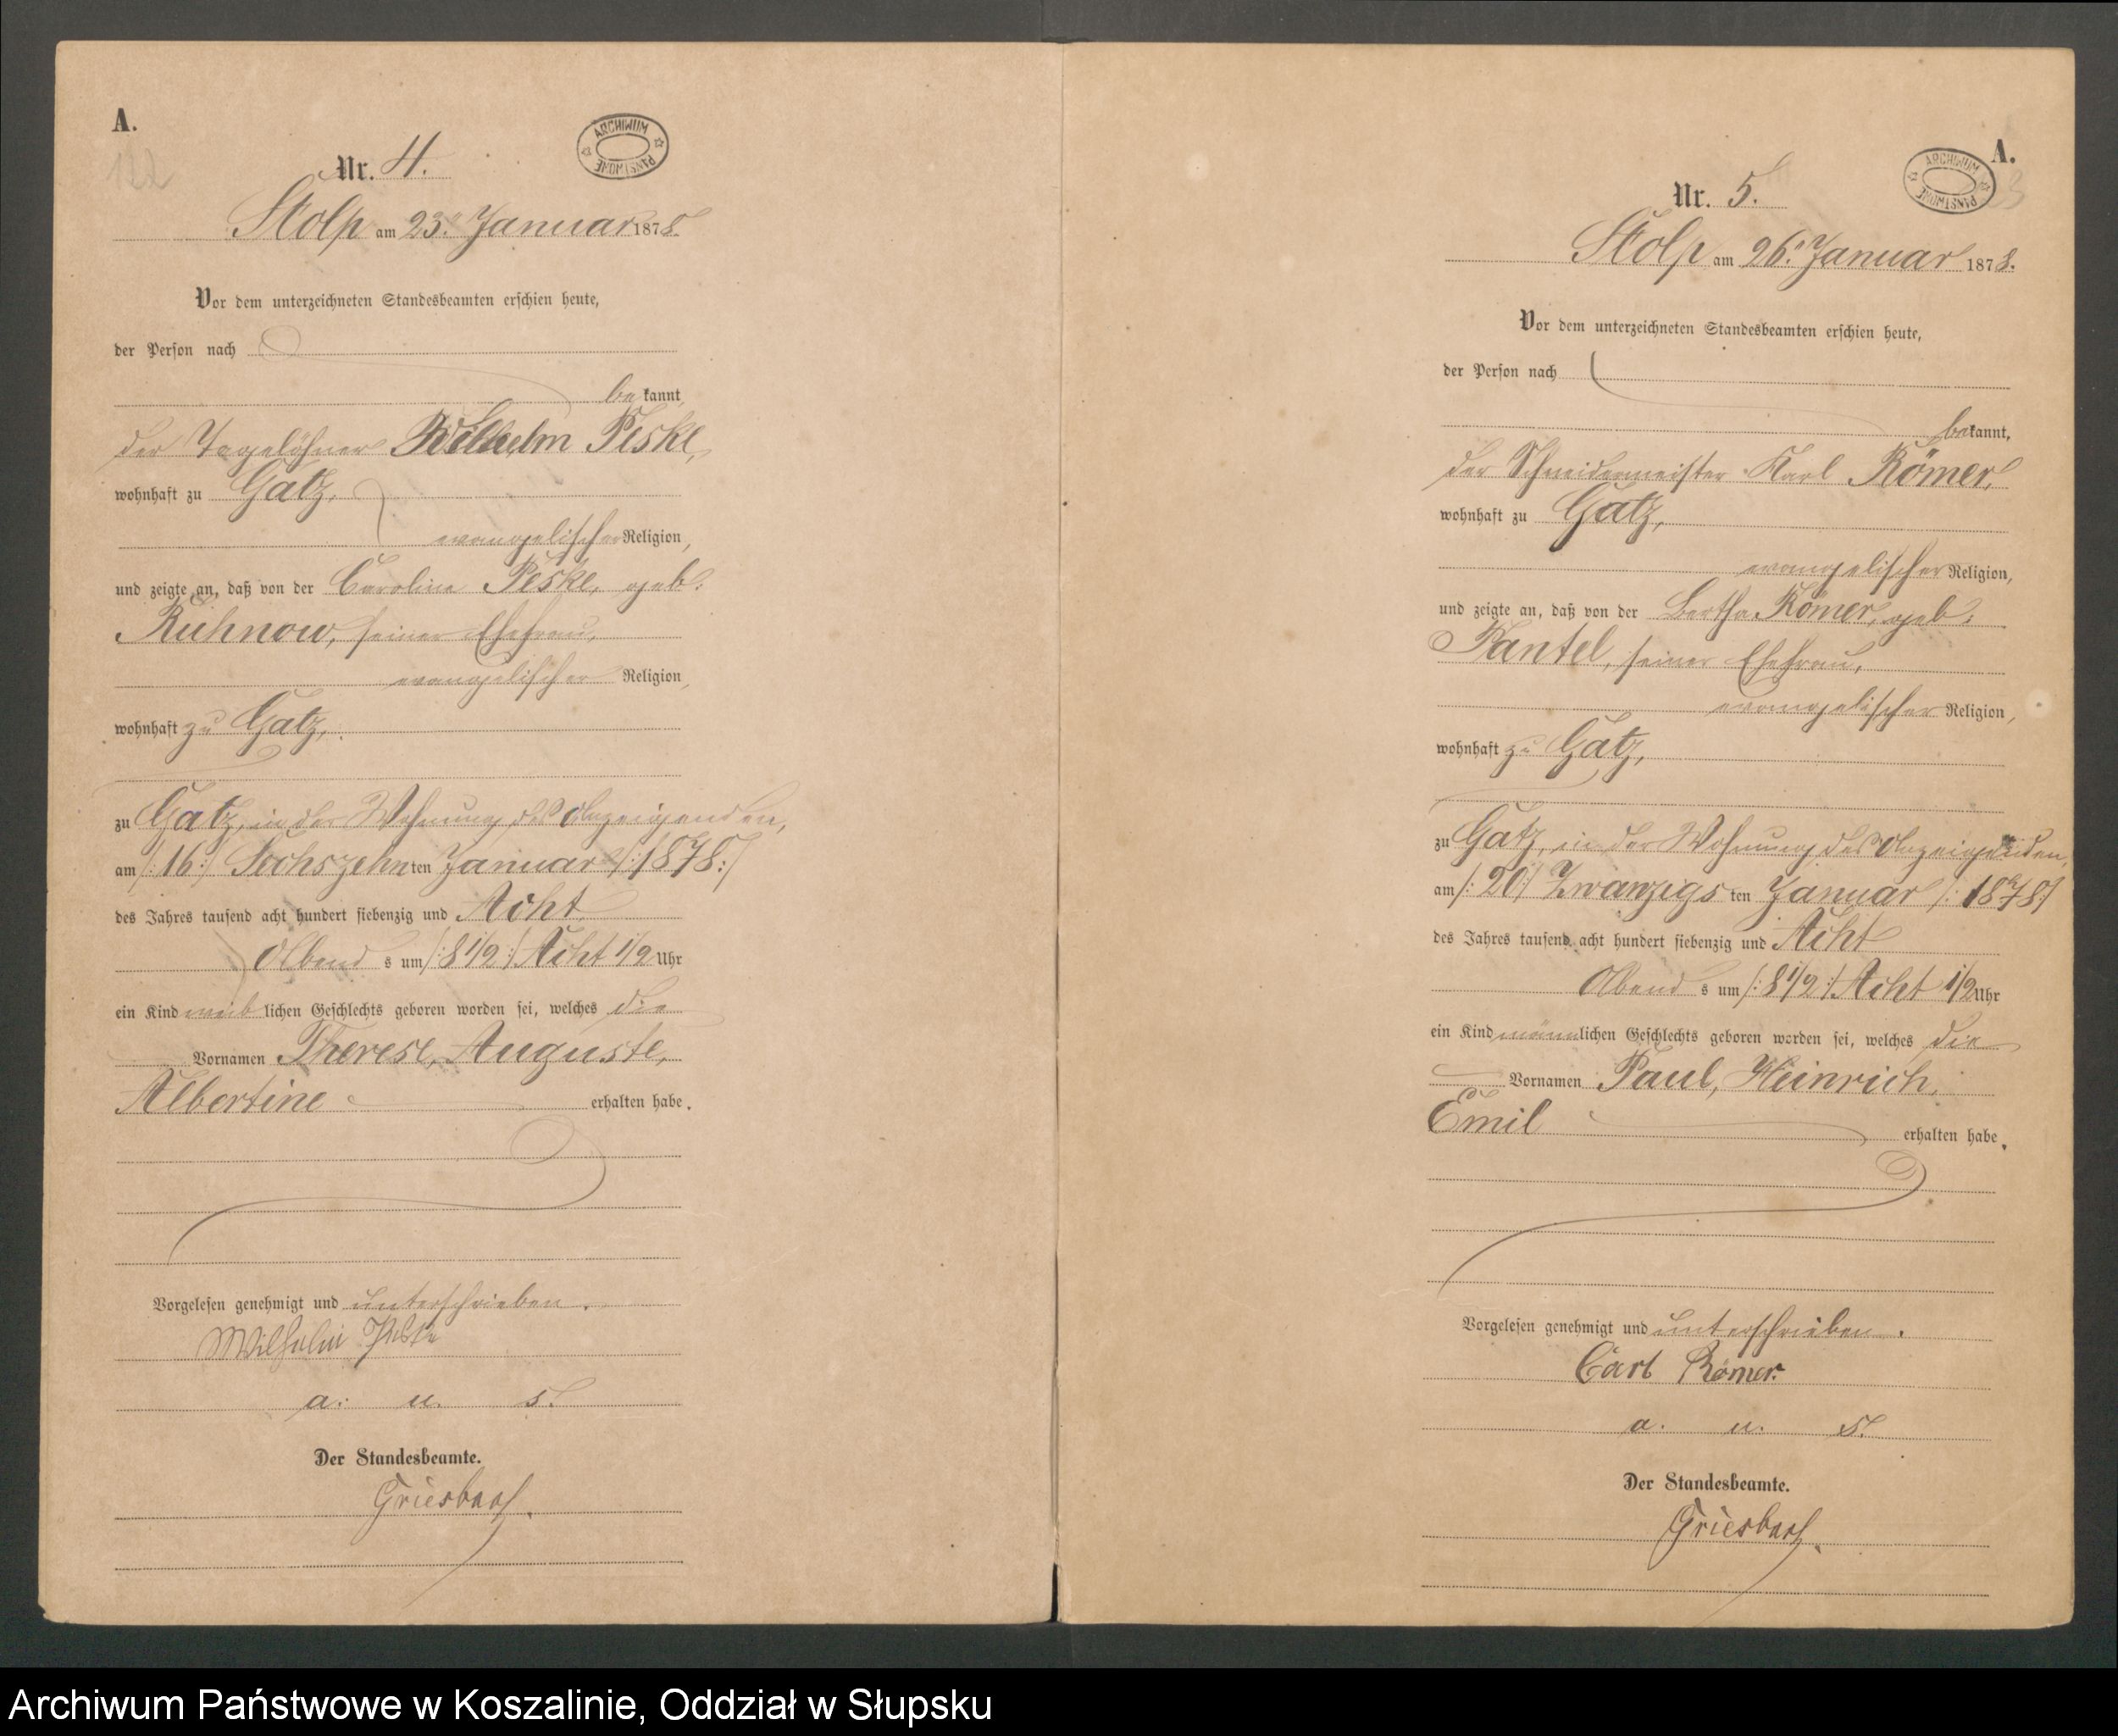 A.
122
Nr. 4.
ARCHIWUM PAŃSTWOWE
Stolp am 23. Januar 1878.
Vor dem unterzeichneten Standesbeamten erschien heute,
der Person nach
bekannt,
der Tagelöhner Wilhelm Peske,
wohnhaft zu Gatz,
evangelischer Religion,
und zeigte an, daß von der Caroline Peske, geb.
Ruhnow, seiner Ehefrau,
evangelischer Religion,
wohnhaft zu Gatz,
zu Gatz, in der Wohnung des Anzeigenden,
am /:16:/ Sechszehnten Januar /:1878:/
des Jahres tausend acht hundert siebenzig und Acht
Abends um /:8 1/2:/ Acht 1/2 Uhr
ein Kind weiblichen Geschlechts geboren worden sei, welches die
Vornamen Therese, Auguste,
Albertine erhalten habe.
Vorgelesen genehmigt und unterschrieben.
Wilhelm Peske
a. u. s.
Der Standesbeamte.
Griesbach.
A.
Nr. 5.
ARCHIWUM PAŃSTWOWE
Stolp am 26. Januar 1878.
Vor dem unterzeichneten Standesbeamten erschien heute,
der Person nach
bekannt,
der Schneidermeister Karl Römer,
wohnhaft zu Gatz,
evangelischer Religion,
und zeigte an, daß von der Bertha Römer, geb.
Pantel, seiner Ehefrau,
evangelischer Religion,
wohnhaft zu Gatz,
zu Gatz, in der Wohnung des Anzeigenden,
am /:20:/ Zwanzigsten Januar /:1878:/
des Jahres tausend acht hundert siebenzig und Acht
Abends um /:8 1/2:/ Acht 1/2 Uhr
ein Kind männlichen Geschlechts geboren worden sei, welches die
Vornamen Paul, Heinrich,
Emil erhalten habe.
Vorgelesen genehmigt und unterschrieben.
Carl Römer.
a. u. s.
Der Standesbeamte.
Griesbach.
Archiwum Państwowe w Koszalinie, Oddział w Słupsku